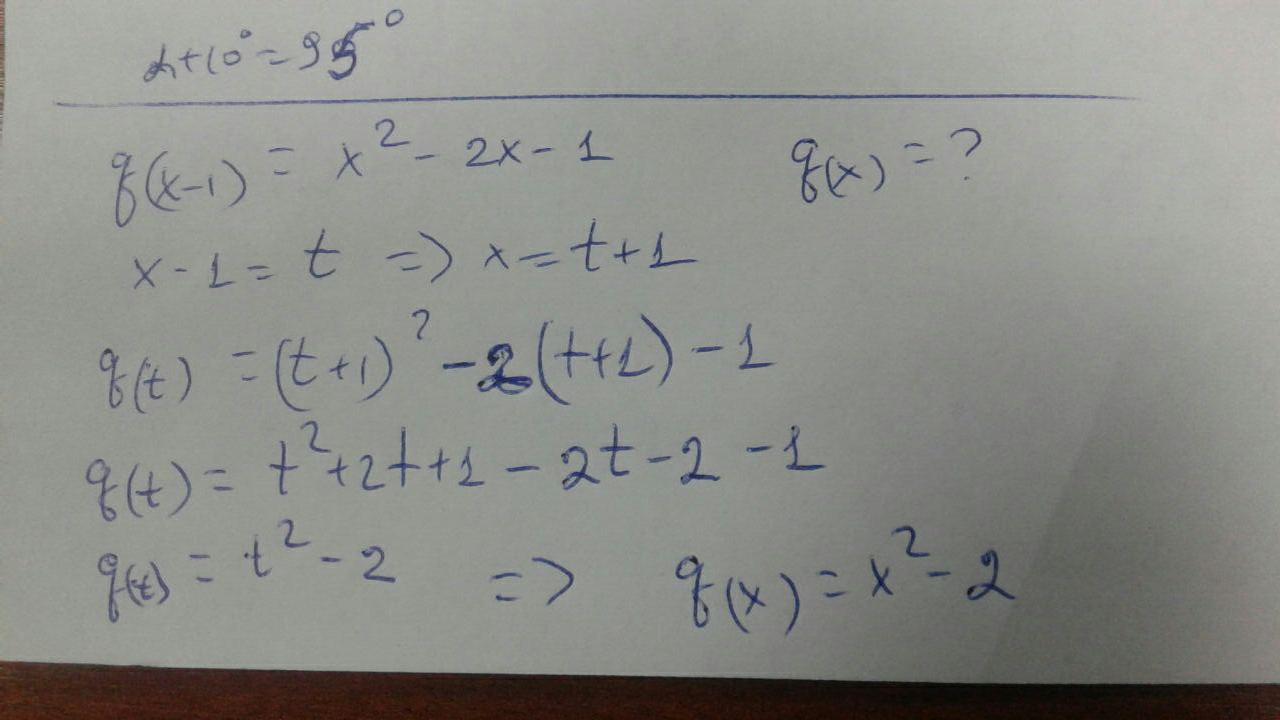 α+10°=95°
q(x-1) = x² - 2x - 1 q(x) = ?
x - 1 = t => x = t+1
q(t) = (t+1)² - 2(t+1) - 1
q(t) = t²+2t+1 - 2t - 2 - 1
q(t) = t² - 2 => q(x) = x² - 2